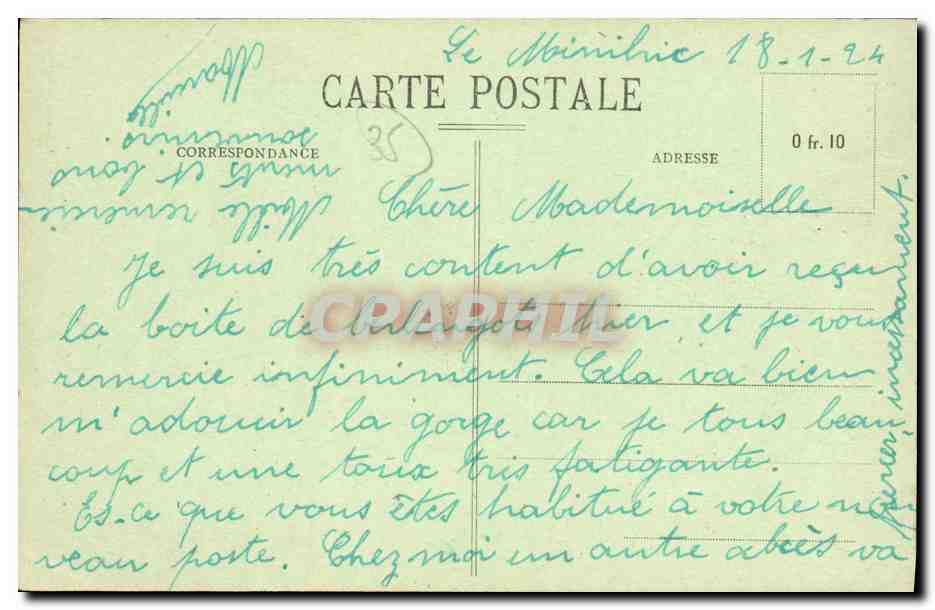 Le Minihic 18-1-24
CARTE POSTALE
CORRESPONDANCE
35
ADRESSE
0 fr. 10
CPAPHIL
Chère Mademoiselle
Je suis très content d'avoir reçu
la boite de berlingots hier et je vous
remercie infiniment. Cela va bien
m'adoucir la gorge car je tous beau-
coup et une toux très fatigante.
Es-ce que vous êtes habitué à votre nou
veau poste. Chez moi un autre abcès va
percer incessament.
Mille remercie-
ments et bons